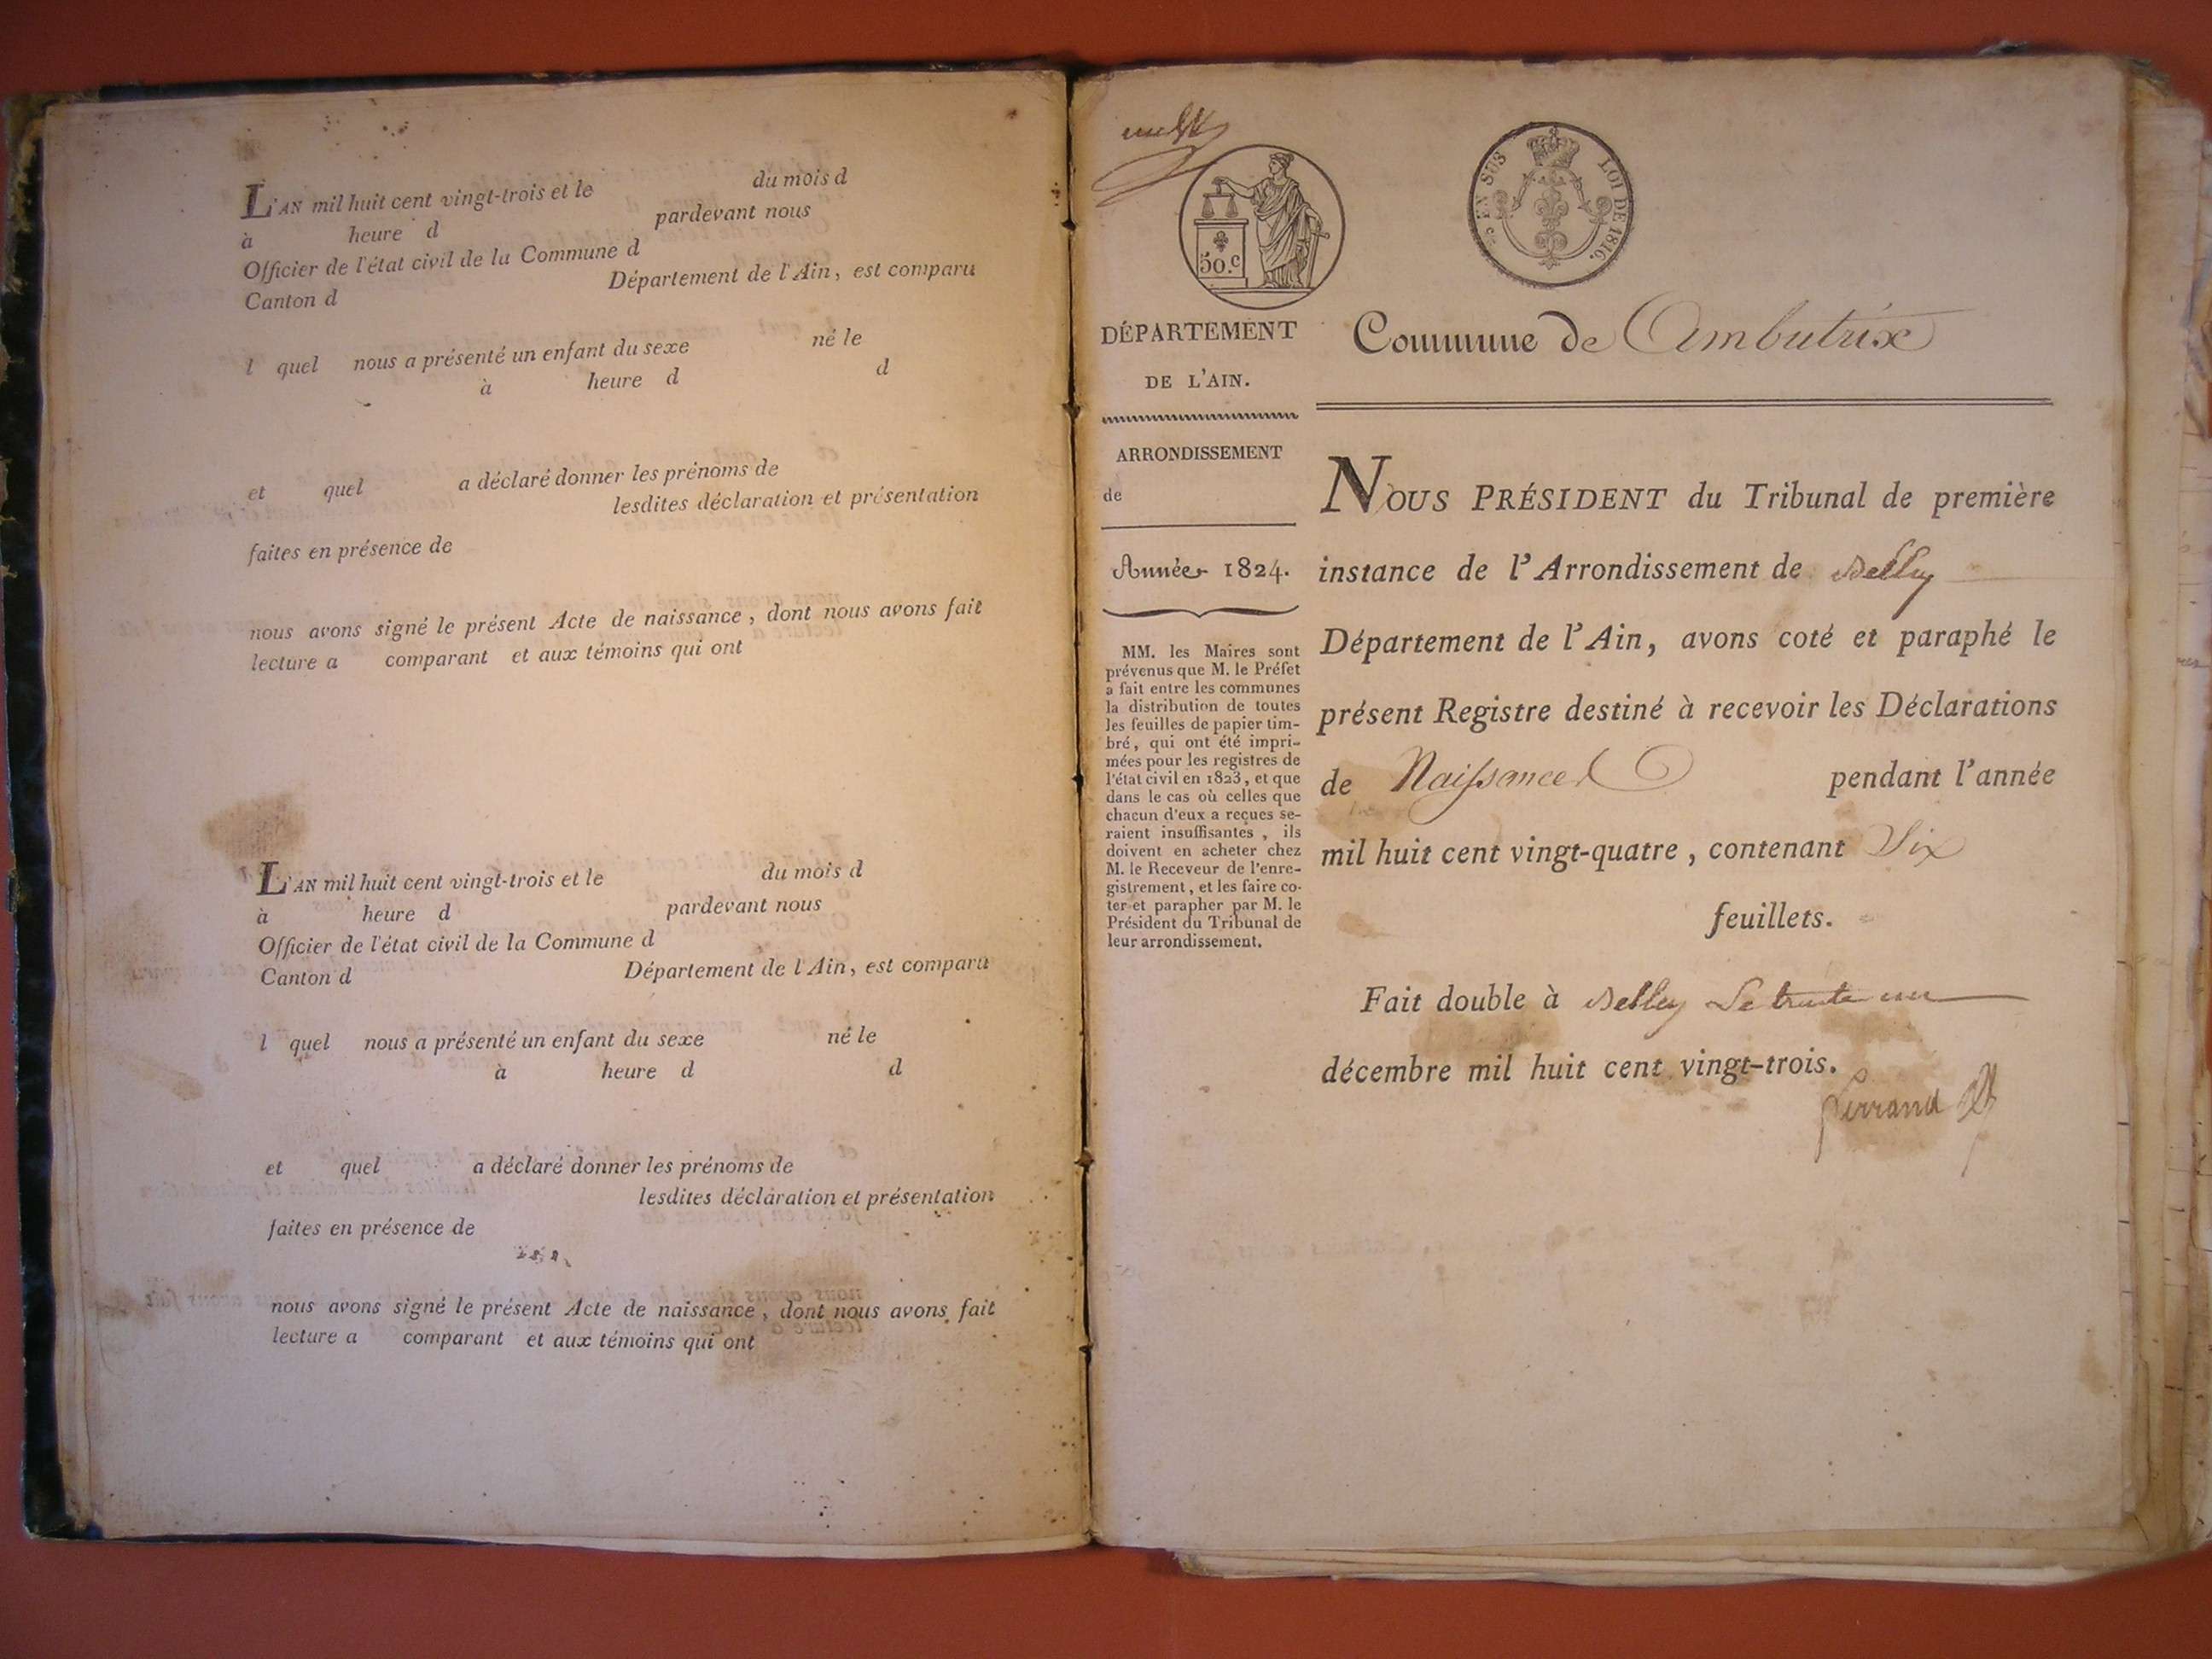 L'AN mil huit cent vingt-trois et le du mois d
à heure d pardevant nous
Officier de l'état civil de la Commune d
Canton d Département de l'Ain, est comparu
l quel nous a présenté un enfant du sexe né le
à heure d d
et quel a déclaré donner les prénoms de
lesdites déclaration et présentation
faites en présence de
nous avons signé le présent Acte de naissance, dont nous avons fait
lecture a comparant et aux témoins qui ont
L'AN mil huit cent vingt-trois et le du mois d
à heure d pardevant nous
Officier de l'état civil de la Commune d
Canton d Département de l'Ain, est comparu
l quel nous a présenté un enfant du sexe né le
à heure d d
et quel a déclaré donner les prénoms de
lesdites déclaration et présentation
faites en présence de
nous avons signé le présent Acte de naissance, dont nous avons fait
lecture a comparant et aux témoins qui ont
50.c
EN SUS LOI DE 1816.
DÉPARTEMENT
DE L'AIN.
ARRONDISSEMENT
de
Année 1824.
MM. les Maires sont
prévenus que M. le Préfet
a fait entre les communes
la distribution de toutes
les feuilles de papier tim-
bré, qui ont été impri-
mées pour les registres de
l'état civil en 1823, et que
dans le cas où celles que
chacun d'eux a reçues se-
raient insuffisantes, ils
doivent en acheter chez
M. le Receveur de l'enre-
gistrement, et les faire co-
ter et parapher par M. le
Président du Tribunal de
leur arrondissement.
Commune de Ambutrix
NOUS PRÉSIDENT du Tribunal de première
instance de l'Arrondissement de Belley
Département de l'Ain, avons coté et paraphé le
présent Registre destiné à recevoir les Déclarations
de Naissance pendant l'année
mil huit cent vingt-quatre, contenant Six
feuillets.
Fait double à Belley Le trente un
décembre mil huit cent vingt-trois.